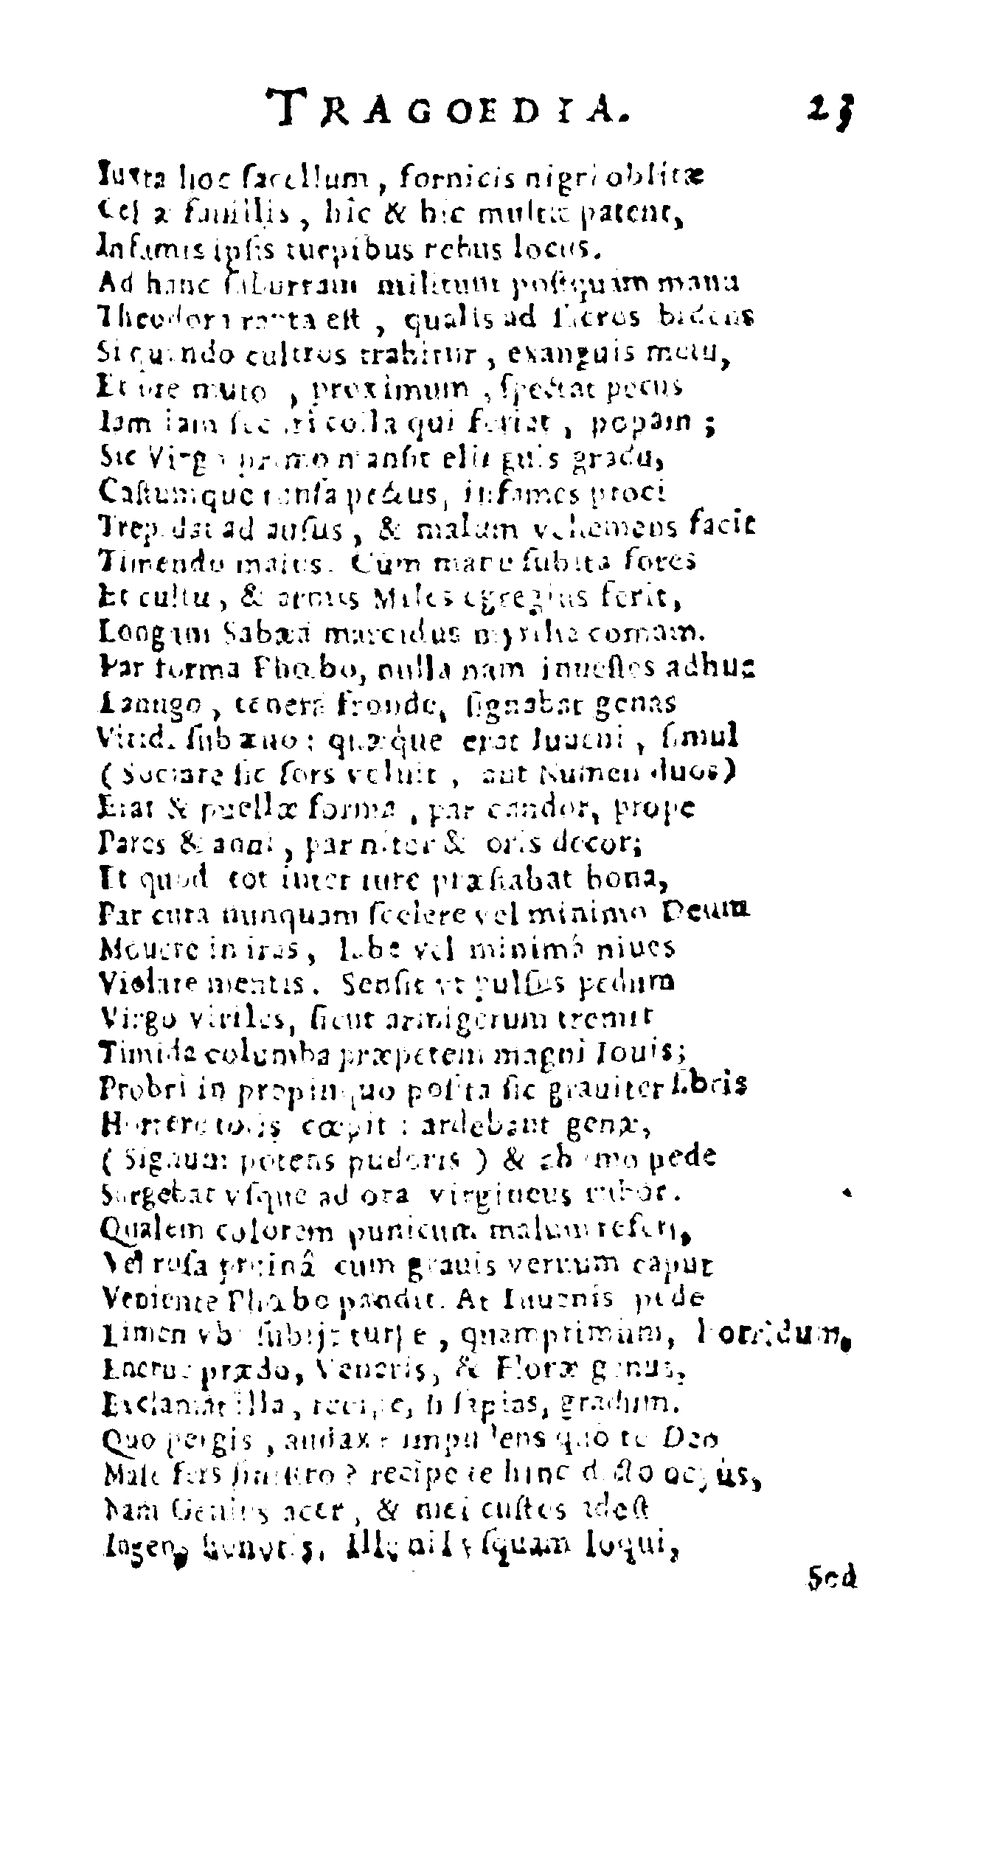 TRAGOEDIA. 23
Iuxta hoc sacellum, fornicis nigri oblitæ
Cellæ fauillis, hîc & hîc multæ patent,
Infamis ipsis turpibus rebus locus.
Ad hanc suburram militum postquam manu
Theodora rapta est, qualis ad sacros bidens
Si quando cultros trahitur, exanguis metu,
Et ore muto, proximum, spectat pecus
Iam iam securi colla qui feriat, popam;
Sic Virgo primo mansit elinguis gradu,
Castumque tunsa pectus, infames proci
Trepidat ad ausus, & malum vehemens facit
Timendo maius. Cum manu subita fores
Et cultu, & armis Miles egregius ferit,
Longam Sabæa marcidus myrrha comam.
Par forma Phœbo, nulla nam inuestes adhuc
Lanugo, tenera fronde, signabat genas
Virid. sub æuo: quæque erat Iuueni, simul
(Sociare sic sors voluit, aut Numen duos)
Erat & puellæ forma, par candor, prope
Pares & anni, par nitor & oris decor;
Et quod tot inter iure præstabat bona,
Par cura nunquam scelere vel minimo Deum
Mouere in iras, labe vel minimâ niues
Violare mentis. Sensit vt pulsus pedum
Virgo viriles, sicut armigerum tremit
Timida columba præpetem magni Iouis;
Probri in propinquo posita sic grauiter fibris
Horrere totis cœpit: ardebant genæ,
(Signum potens pudoris) & ab imo pede
Surgebat vsque ad ora virgineus rubor.
Qualem colorem punicum malum refert,
Vel rosa pruinâ cum grauis vernum caput
Veniente Phœbo pandit. At Iuuenis pede
Limen vbi subijt turpe, quamprimum, horridum,
Eheu: prædo, Veneris, & Floræ genus,
Exclamat illa, recipe, si sapias, gradum.
Quo pergis, audax? impudens quo te Deo
Male fers sinistro? recipe te hinc dicto ocyùs,
Nam Genius acer, & mei custos adest
Ingens honoris. Ille nil vsquam loqui,
Sed